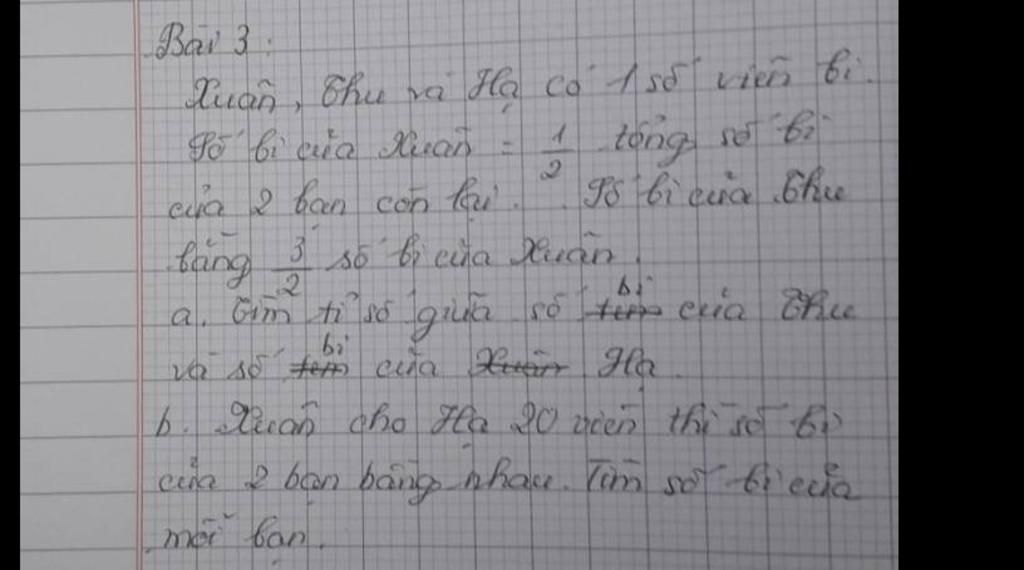 Bài 3:
Xuân, Thu và Hạ có 1 số viên bi.
Số bi của Xuân = 1/2 tổng số bi
của 2 bạn còn lại. Số bi của Thu
bằng 3/2 số bi của Xuân.
a. Tìm tỉ số giữa số bi của Thu
và số bi của Hạ.
b. Xuân cho Hạ 20 viên thì số bi
của 2 bạn bằng nhau. Tìm số bi của
mỗi bạn.